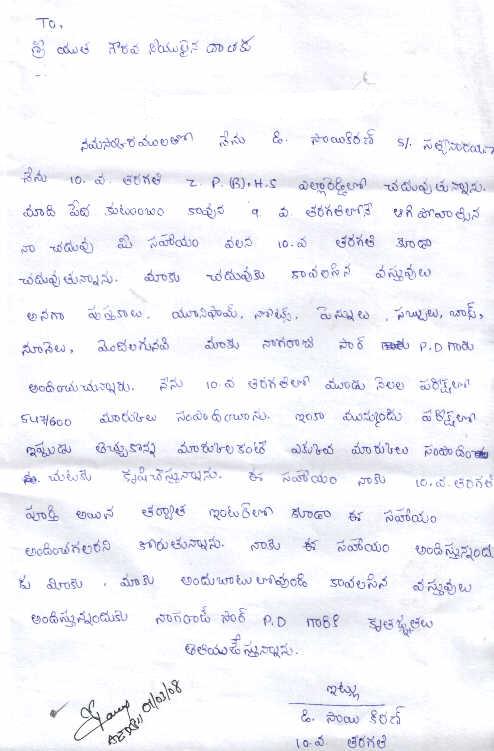 To,
శ్రీ యుత గౌరవ నీయులైన దాతకు
నమస్కారములతో నేను డి. సాయికిరణ్ S/. సత్యనారాయణ
నేను 10. వ. తరగతి Z. P. (B). H.S ఎల్లారెడ్డిలో చదువుతున్నాను.
మాది పేద కుటుంబం కావున 9 వ. తరగతిలోనే ఆగి పోవాల్సిన
నా చదువు మీ సహాయం వలన 10.వ తరగతి కూడా
చదువుతున్నాను. మాకు చదువుకు కావలసిన వస్తువులు
అనగా పుస్తకాలు, యూనిఫామ్, నోట్స్, పెన్నులు, సబ్బులు, బ్రాష్,
నూనెలు, మొదలగునవి మాకు నాగరాజ్ సార్ P.D గారు
అందించుచున్నారు. నేను 10.వ తరగతిలో మూడు నెలల పరీక్షలో
547/600 మార్కులు సంపాదించాను. ఇంకా ముస్సుందు పరీక్షలో
ఇప్పుడు తెచ్చుకొన్న మార్కులకంటే ఎక్కువ మార్కులు సంపాదిం
చుటకు కృషిచేస్తున్నాను. ఈ సహాయం నాకు 10.వ.తరగతి
పూర్తి అయిన తర్వాత ఇంటర్‌లో కూడా ఈ సహాయం
అందించగలరని కోరుతున్నాను. నాకు ఈ సహాయం అందిస్తున్నందు
కు మీకు, మాకు అందుబాటులోవుండి కావలసిన వస్తువులు
అందిస్తున్నందుకు నాగరాజ్ సార్ P.D గారికి కృతజ్ఞతలు
తెలియచేస్తున్నాను.
ఇట్లు
డి. సాయి కిరణ్
10.వ తరగతి
01/03/08